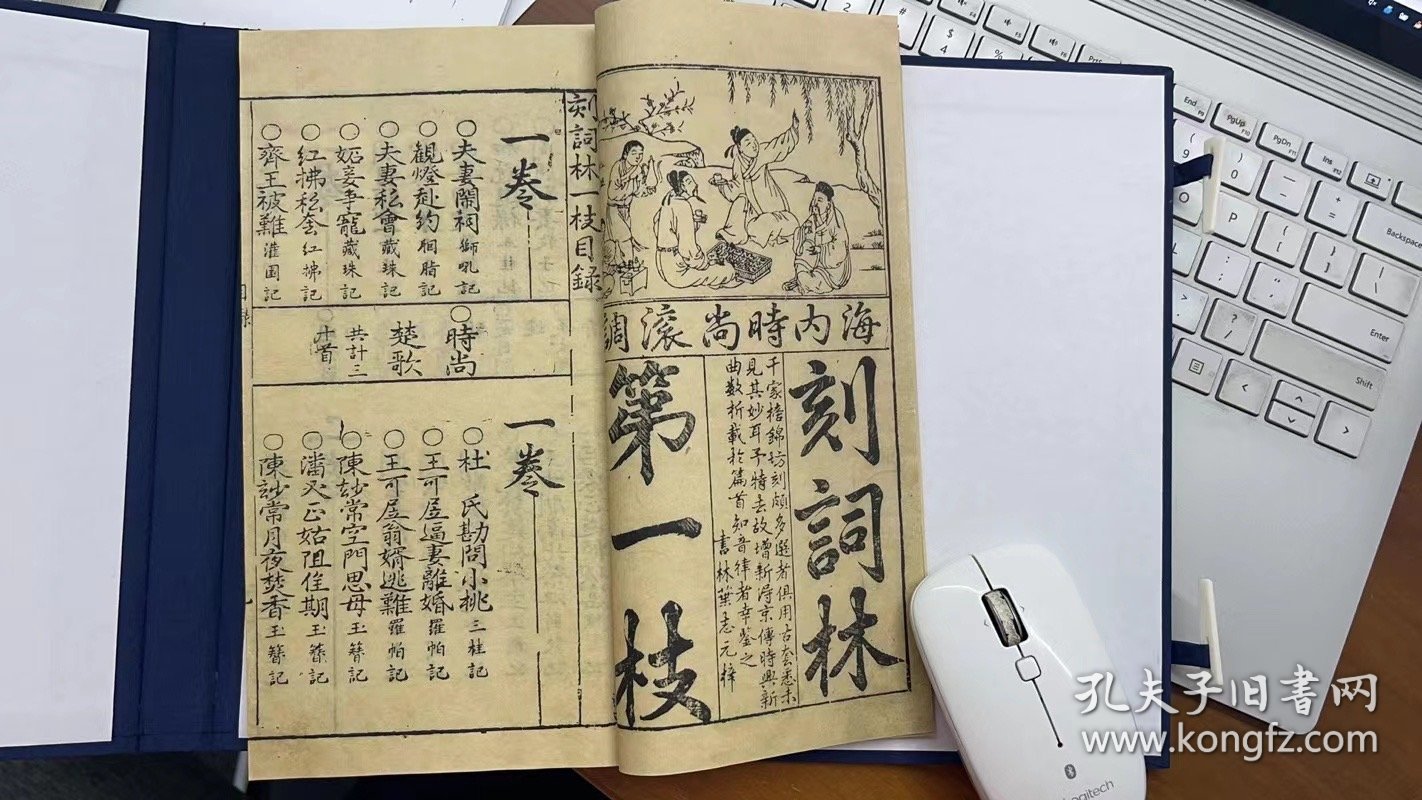 海内時尚滾調
刻詞林
第一枝
千家摛錦坊刻頗多選者俱用古套悉未
見其妙耳予特去故增新得京傳時興新
曲数折載於篇首知音律者幸鑒之
書林葉志元梓
刻詞林一枝目錄
一卷
○夫妻鬧祠 獅吼記
○観燈赴約 胭脂記
○夫妻私會 藏珠記
○妬妾争寵 藏珠記
○紅拂私奔 紅拂記
○齊王被難 灌园記
○時尚
楚歌
共計三
十首
一卷
○杜氏勘問小桃 三桂記
○王可居逼妻離婚 羅帕記
○王可居翁婿逃難 羅帕記
○陳玅常空門思母 玉簪記
○潘必正姑阻佳期 玉簪記
○陳玅常月夜焚香 玉簪記
目錄
孔夫子旧書网
www.kongfz.com
logitech
Backspace
Enter
Shift
End
PgUp
PgDn
Ins